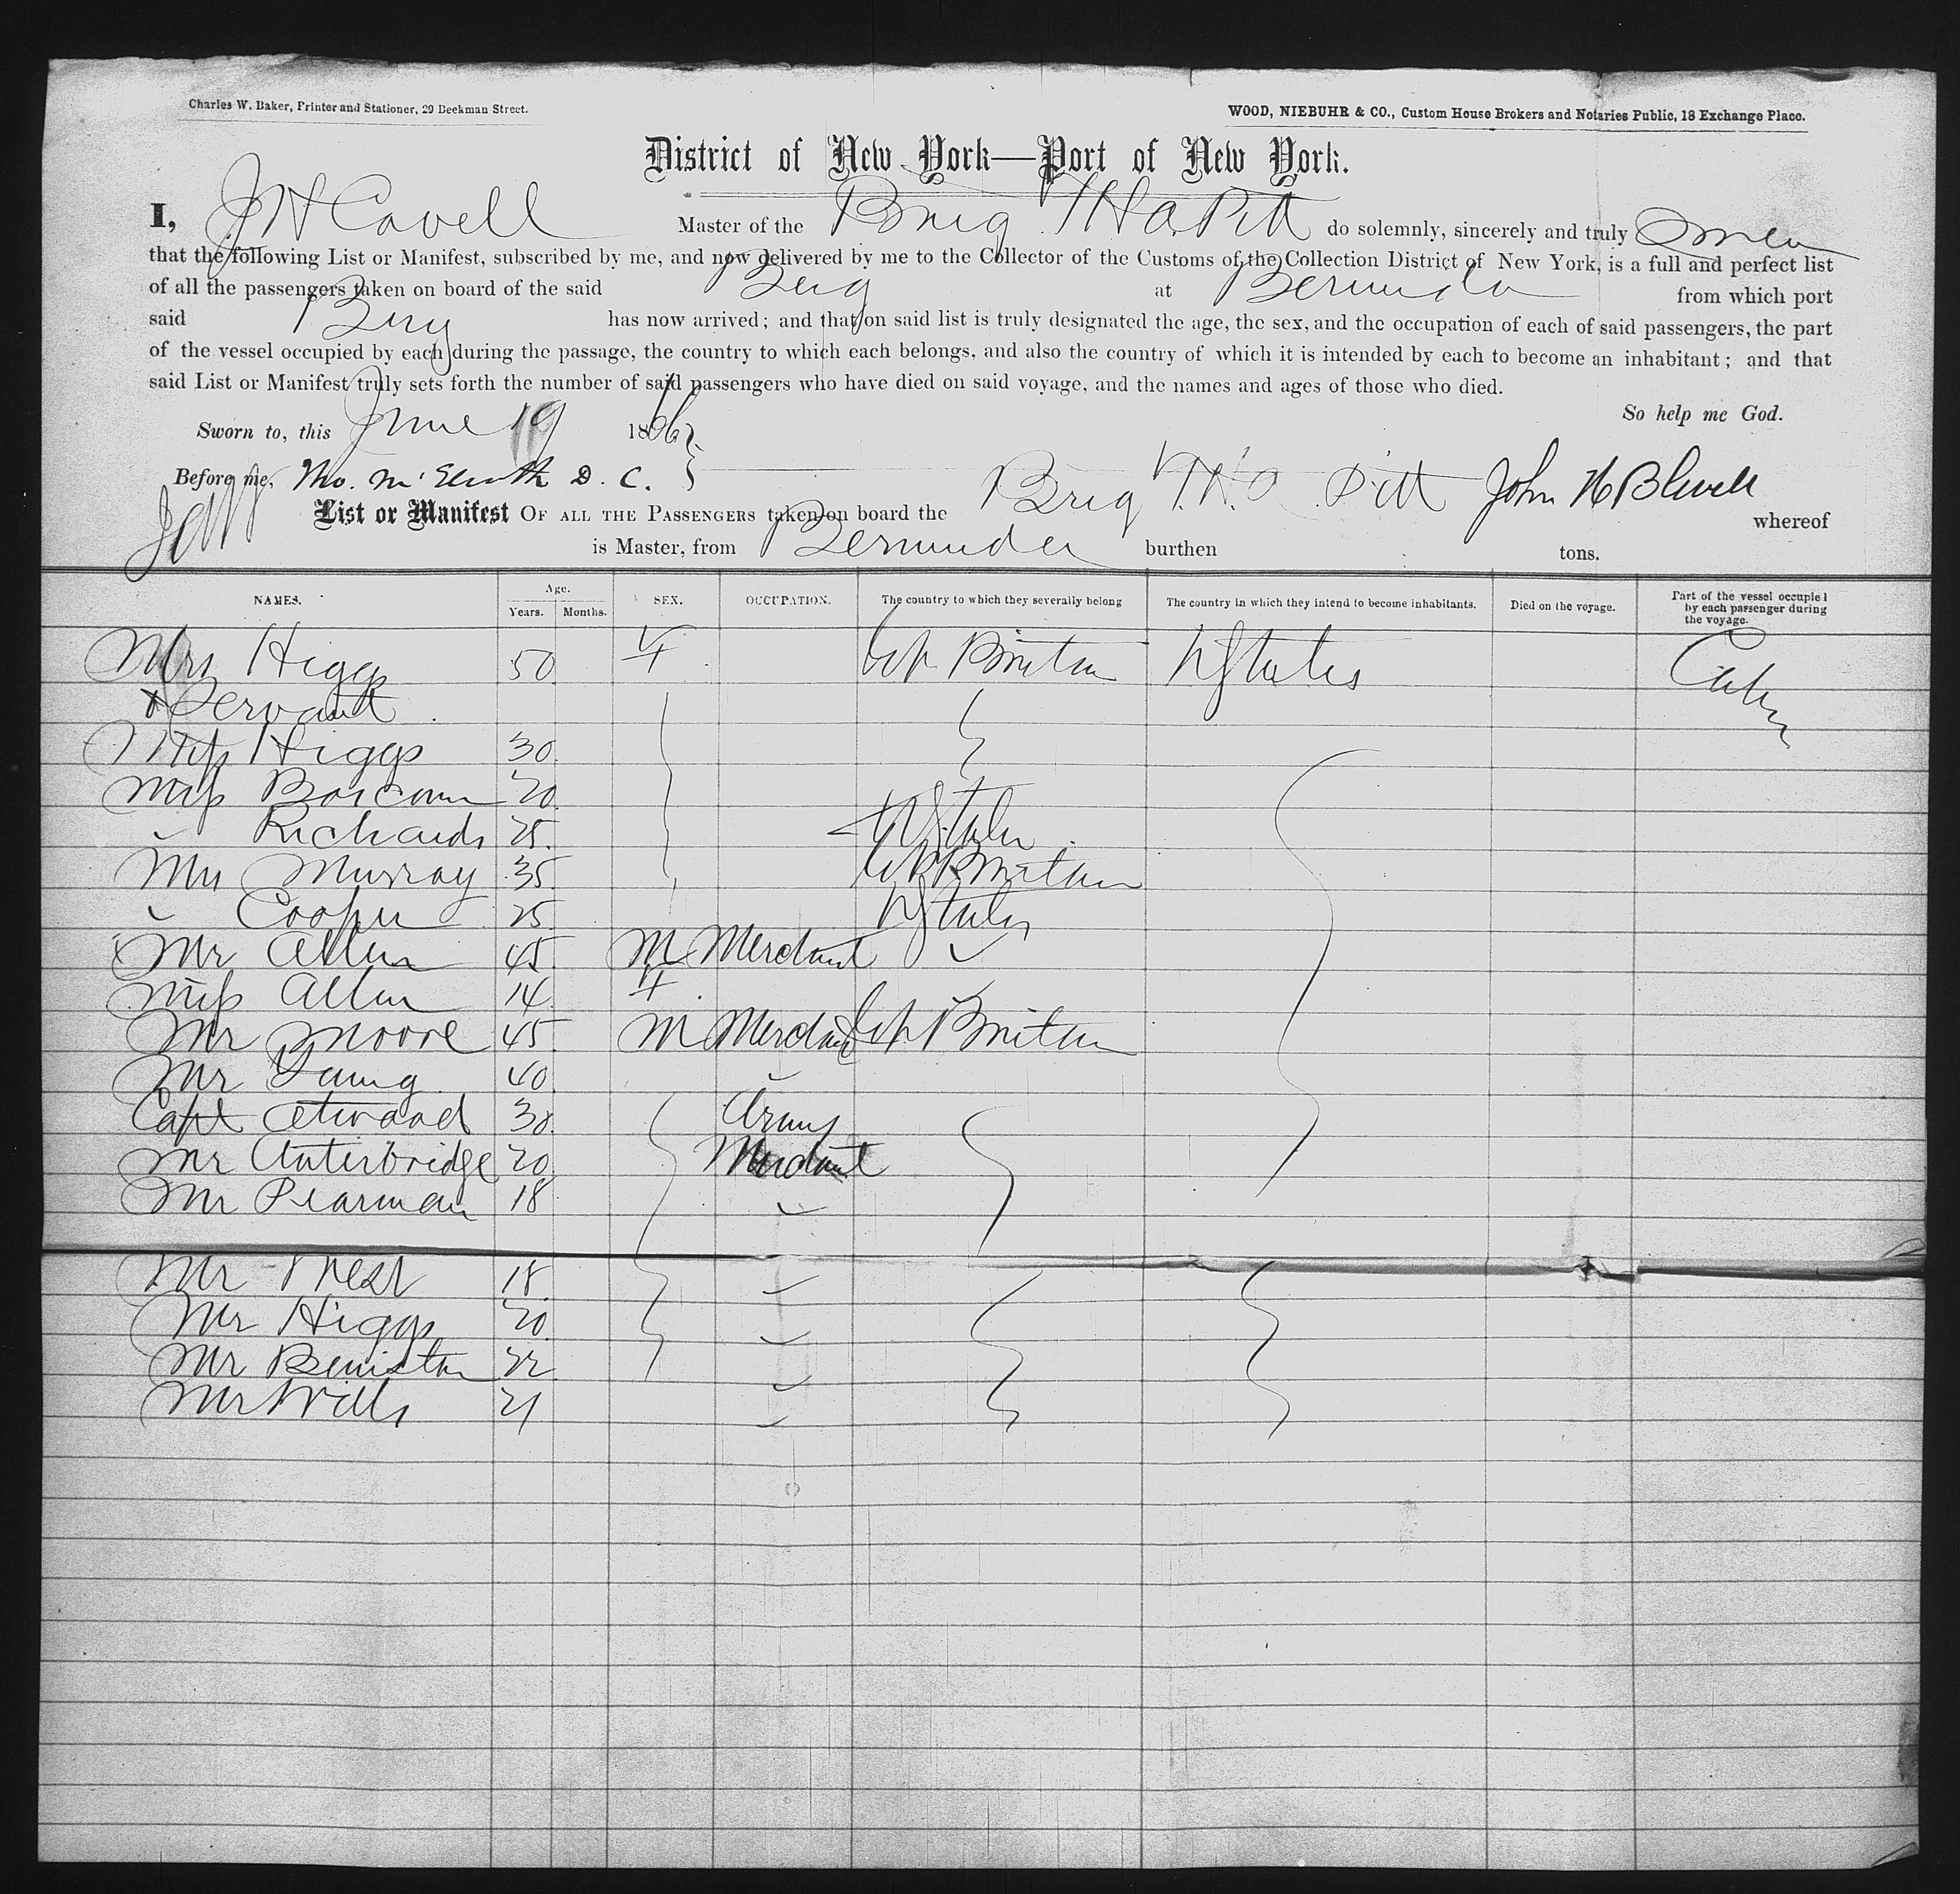 Charles W. Baker, Printer and Stationer, 29 Beekman Street.
WOOD, NIEBUHR & CO., Custom House Brokers and Notaries Public, 18 Exchange Place.
District of New York—Port of New York.
I, J H Cavell Master of the Brig T H A Pitt do solemnly, sincerely and truly swear
that the following List or Manifest, subscribed by me, and now delivered by me to the Collector of the Customs of the Collection District of New York, is a full and perfect list
of all the passengers taken on board of the said Brig at Bermuda from which port
said Brig has now arrived; and that on said list is truly designated the age, the sex, and the occupation of each of said passengers, the part
of the vessel occupied by each during the passage, the country to which each belongs, and also the country of which it is intended by each to become an inhabitant; and that
said List or Manifest truly sets forth the number of said passengers who have died on said voyage, and the names and ages of those who died.
So help me God.
Sworn to, this June 19 186
Before me, Tho. D. C.
John H
List or Manifest OF ALL THE PASSENGERS taken on board the Brig T.H.A Pitt whereof
is Master, from Bermuda burthen tons.
NAMES. Age. Years. Months. SEX. OCCUPATION. The country to which they severally belong The country in which they intend to become inhabitants. Died on the voyage. Part of the vessel occupied by each passenger during the voyage.
Mrs Higgs 50 F Gt Britain U States Cabin
& Servant
Miss Higgs 30
Miss Boscomn 20
Richards 25 U States
Mrs Murray 35 Gt Britain
Cooper 25 U States
Mr Allen 45 M Merchant
Miss Allen 14 F
Mr Moore 45 M Merchant Gt Britain
Mr Young 40
Capt Atwood 30 Army
Mr Outerbridge 20 Merchant
Mr Pearman 18
Mr West 18
Mr Higgs 20
Mr Beniston 22
Mr Wills 21